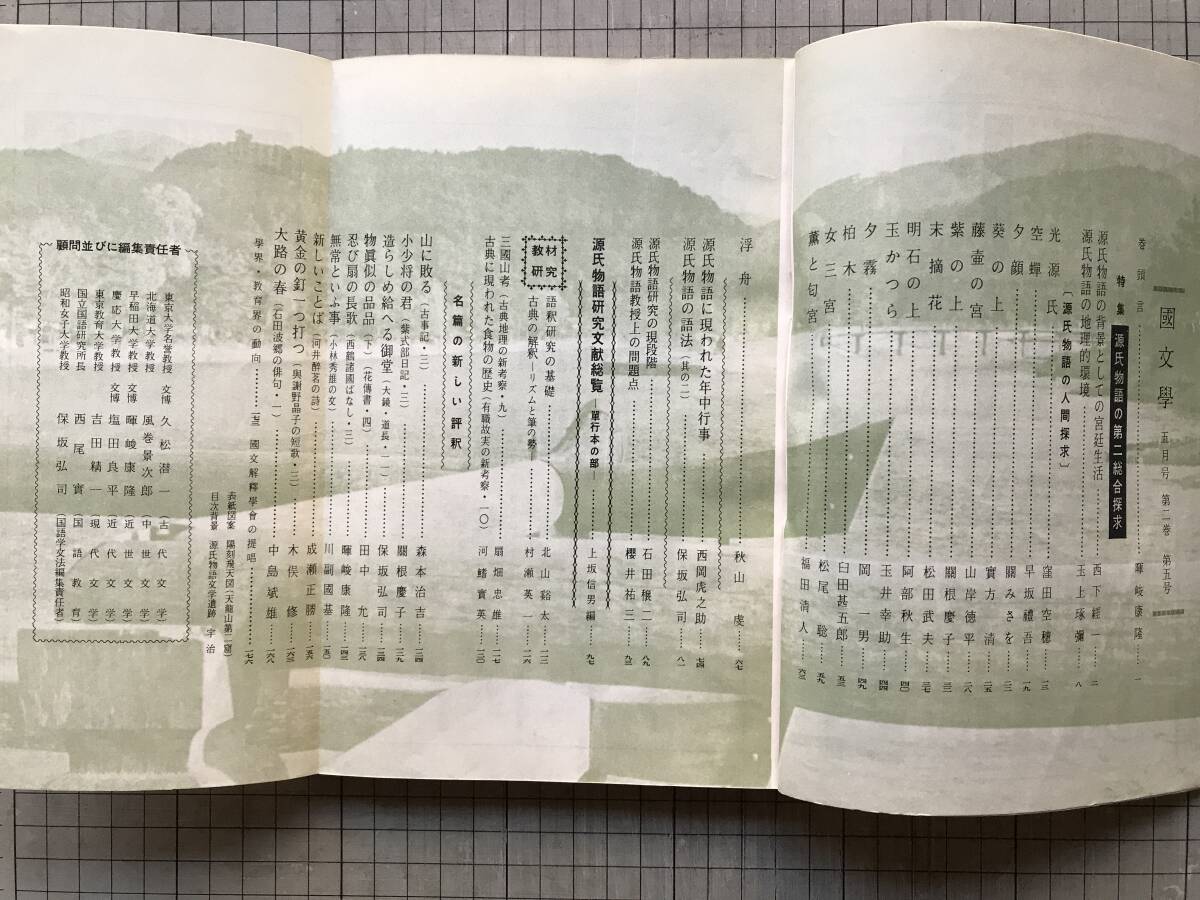 國文學 五月号 第二巻 第五号
巻頭言……暉峻康隆……一
特集 源氏物語の第二総合探求
源氏物語の背景としての宮廷生活……西下経一……二
源氏物語の地理的環境……玉上琢彌……八
〔源氏物語の人間探求〕
光源氏……窪田空穂……一三
空蟬……早坂禮吾……一九
夕顔……關みさを……二二
葵の上……實方清……二五
藤壷の宮……山岸徳平……二八
紫の上……關根慶子……三二
末摘花……松田武夫……三七
明石の上……阿部秋生……四〇
玉かつら……玉井幸助……四四
夕霧……岡一男……四九
柏木……臼田甚五郎……五三
女三宮……松尾聡……五九
薫と匂宮……福田清人……六三
浮舟……秋山虔……六七
源氏物語に現われた年中行事……西岡虎之助……七四
源氏物語の語法(其の二)……保坂弘司……八一
源氏物語研究の現段階……石田穣二……八九
源氏物語教授上の問題点……櫻井祐三……九三
源氏物語研究文献総覧―單行本の部―……上坂信男編……九七
教材研究
語釈研究の基礎……北山谿太……一一三
古典の解釈―リズムと筆の勢―……村瀬英一……一二六
三國山考(古典地理の新考察・九)……扇畑忠雄……一二七
古典に現われた食物の歴史(有職故実の新考察・一〇)……河鰭實英……一三〇
名篇の新しい評釈
山に敗る(古事記・三)……森本治吉……一三四
小少将の君(紫式部日記・三)……關根慶子……一三九
造らしめ給へる御堂(大鏡・道長・一一)……保坂弘司……一三四
物眞似の品品(下)(花傳書・四)……田中允……一三八
忍び扇の長歌(西鶴諸國ばなし・三)……暉峻康隆……一四三
無常といふ事(小林秀雄の文)……川副國基……一五〇
新しいことば(河井酔茗の詩)……成瀬正勝……一五六
黄金の釘一つ打つ(與謝野晶子の短歌・二)……木俣修……一六三
大路の春(石田波郷の俳句・一)……中島斌雄……一六八
學界・教育界の動向……一七三
國文解釋學會の提唱……一七六
表紙図案 陽刻飛天図(天龍山第二窟)
目次背景 源氏物語文学遺跡 宇治
顧問並びに編集責任者
東京大学名誉教授 文博 久松潜一(古代文学)
北海道大学教授 風巻景次郎(中世文学)
早稲田大学教授 文博 暉峻康隆(近世文学)
慶応大学教授 文博 塩田良平(近代文学)
東京教育大学教授 吉田精一(現代文学)
国立国語研究所長 西尾實(国語教育)
昭和女子大学教授 保坂弘司(国語学文法編集責任者)